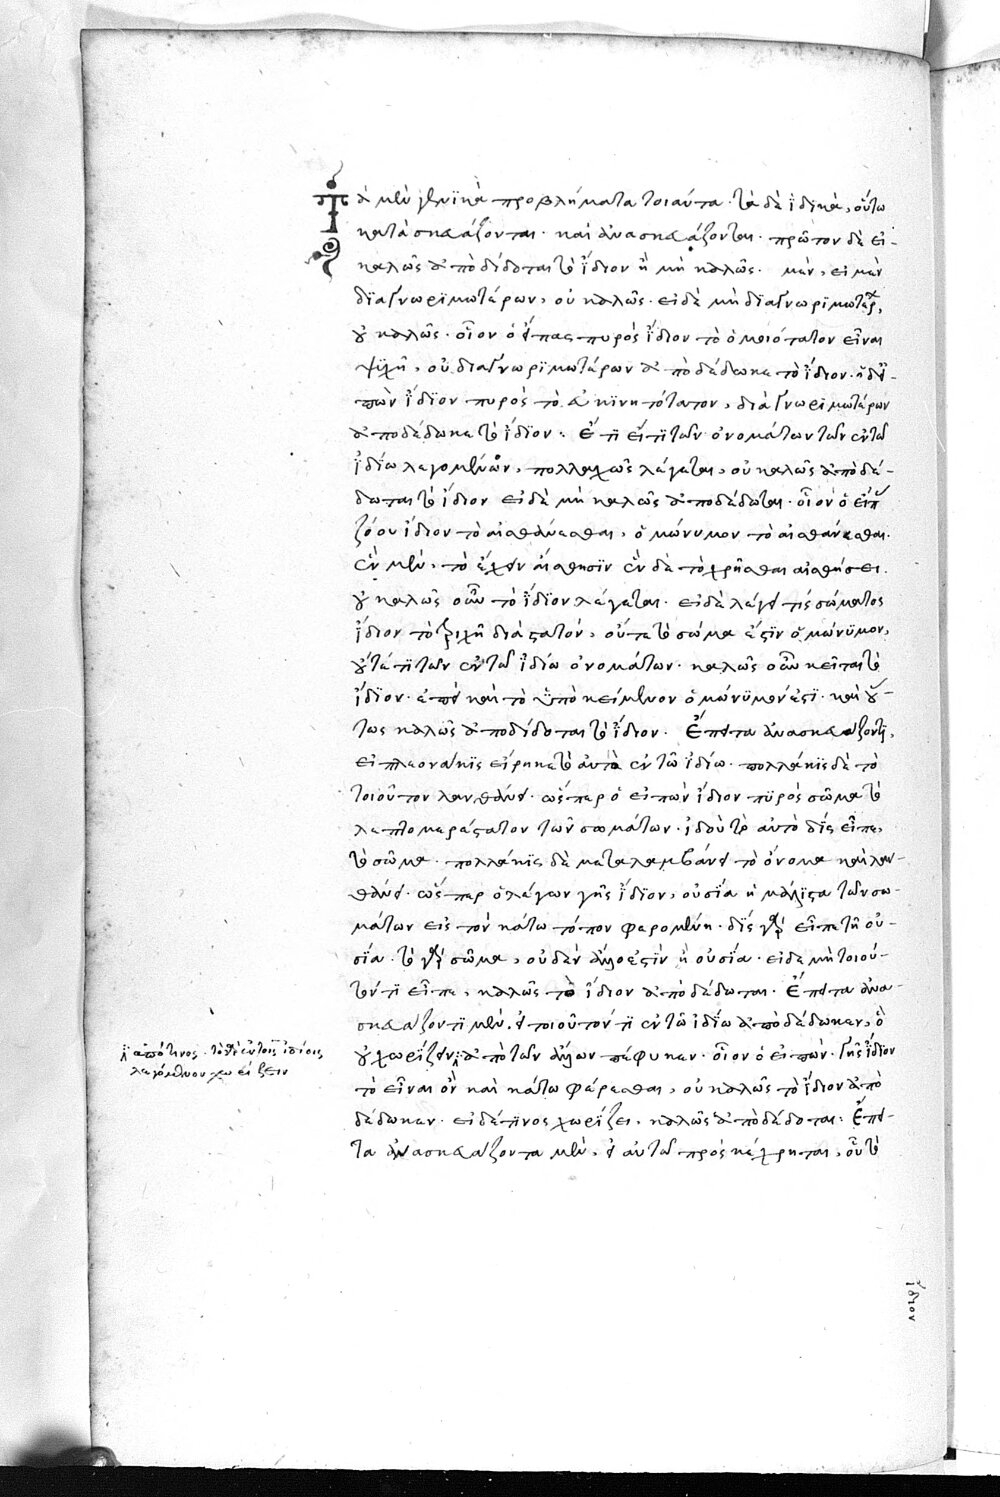 Τὰ μὲν γενικὰ προβλήματα τοιαῦτα· τὰ δὲ ἰδικὰ, οὕτω
κατασκευάζονται· καὶ ἀνασκευάζονται· πρῶτον δὲ εἰ
καλῶς ἀποδίδοται τὸ ἴδιον ἢ μὴ καλῶς· εἰ μὲν
διαγνωριμωτέρων, οὐ καλῶς· εἰ δὲ μὴ διαγνωριμωτέρ,
οὐ καλῶς· οἷον ὁ εἴπας πυρὸς ἴδιον τὸ ὁμοιότατον εἶναι
ψυχῆ, οὐ διαγνωριμωτέρων ἀποδέδωκε τὸ ἴδιον· ὁ δ' εἰ
πὼν ἴδιον πυρὸς τὸ εὐκινητότατον, διαγνωριμωτέρων
ἀποδέδωκε τὸ ἴδιον· Ἔτι εἴ τι τῶν ὀνομάτων τῶν ἐν τῶ
ἰδίω λεγομένων, πολλαχῶς λέγεται, οὐ καλῶς ἀποδέ
δωται τὸ ἴδιον εἰ δὲ μὴ καλῶς ἀποδέδωται· οἷον ὁ εἰπὼν
ζώου ἴδιον τὸ αἰσθάνεσθαι, ὁμώνυμον τὸ αἰσθάνεσθαι·
ἓν μὲν, τὸ ἔχειν αἴσθησιν ἓν δὲ τὸ χρῆσθαι αἰσθήσει·
οὐ καλῶς οὖν τὸ ἴδιον λέγεται· εἰ δὲ λέγει τίς σώματος
ἴδιον τὸ τριχῆ διαστατόν, οὔτε τὸ σῶμα ἐστὶν ὁμώνυμον,
οὔτέ τι τῶν ἐν τῶ ἰδίω ὀνομάτων· καλῶς οὖν κεῖται τὸ
ἴδιον· ἐπεὶ καὶ τὸ ὑποκείμενον ὁμώνυμόν ἐστι· καὶ οὕ
τως καλῶς ἀποδίδοται τὸ ἴδιον· Ἔπειτα ἀνασκευάζοντι,
εἰ πλεονάκις εἴρηκε τὸ αὐτὸ ἐν τῶ ἰδίω· πολλάκις δὲ τὸ
τοιοῦτον λανθάνει· ὥσπερ ὁ εἰπὼν ἴδιον πυρὸς σῶμα τὸ
λεπτομερέστατον τῶν σωμάτων· ἰδοὺ τὸ αὐτὸ δίς εἶπε,
τὸ σῶμα· πολλάκις δὲ μεταλαμβάνει τὸ ὄνομα καὶ λαν
θάνει· ὥσπερ ὁ λέγων γῆς ἴδιον, οὐσία ἡ μάλιστα τῶν σω
μάτων εἰς τὸν κάτω τόπον φερομένη· δὶς γὰρ εἶπε τὴ οὐ
σία· τὸ γὰρ σῶμα, οὐδὲν ἄλλο ἐστὶν ἢ οὐσία· εἰ δὲ μὴ τοιοῦ
τόν τι εἶπε, καλῶς τὸ ἴδιον ἀποδέδωται· Ἔπειτα ἀνα
σκευάζοντι μὲν, εἰ τοιοῦτόν τι ἐν τῶ ἰδίω ἀποδέδωκεν, ὃ
οὐ χωρίζειν ἀπὸ τῶν ἄλλων πέφυκεν· οἷον ὁ εἰπὼν· γῆς ἴδιον
τὸ εἶναι ὂν καὶ κάτω φέρεσθαι, οὐ καλῶς τὸ ἴδιον ἀπο
δέδωκεν· εἰ δέ τινος χωρίζει, καλῶς ἀποδέδοται· Ἔπει
τα ἀνασκευάζοντα μὲν, εἰ αὐτῶ προσκέχρηται, οὗ τὸ
ἢ ἀπό τινος· τὸ γὰρ ἐν τοῖς ἰδίοις
λεγόμενον χωρίζειν
ἴδιον